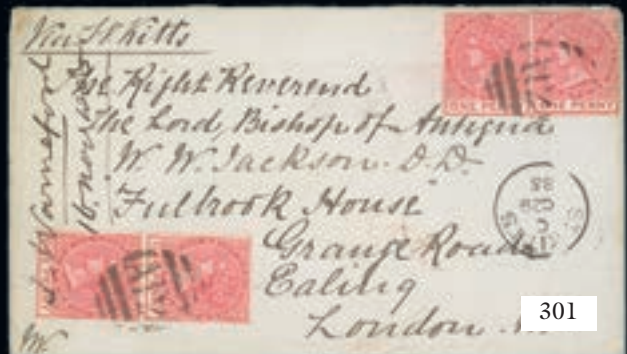 Via St Kitts
The Right Reverend
The Lord Bishop of Antigua
W. W. Jackson. D.D.
Fulbrook House
Grange Road
Ealing
London
ONE PENNY ONE PENNY
A12
A12
301